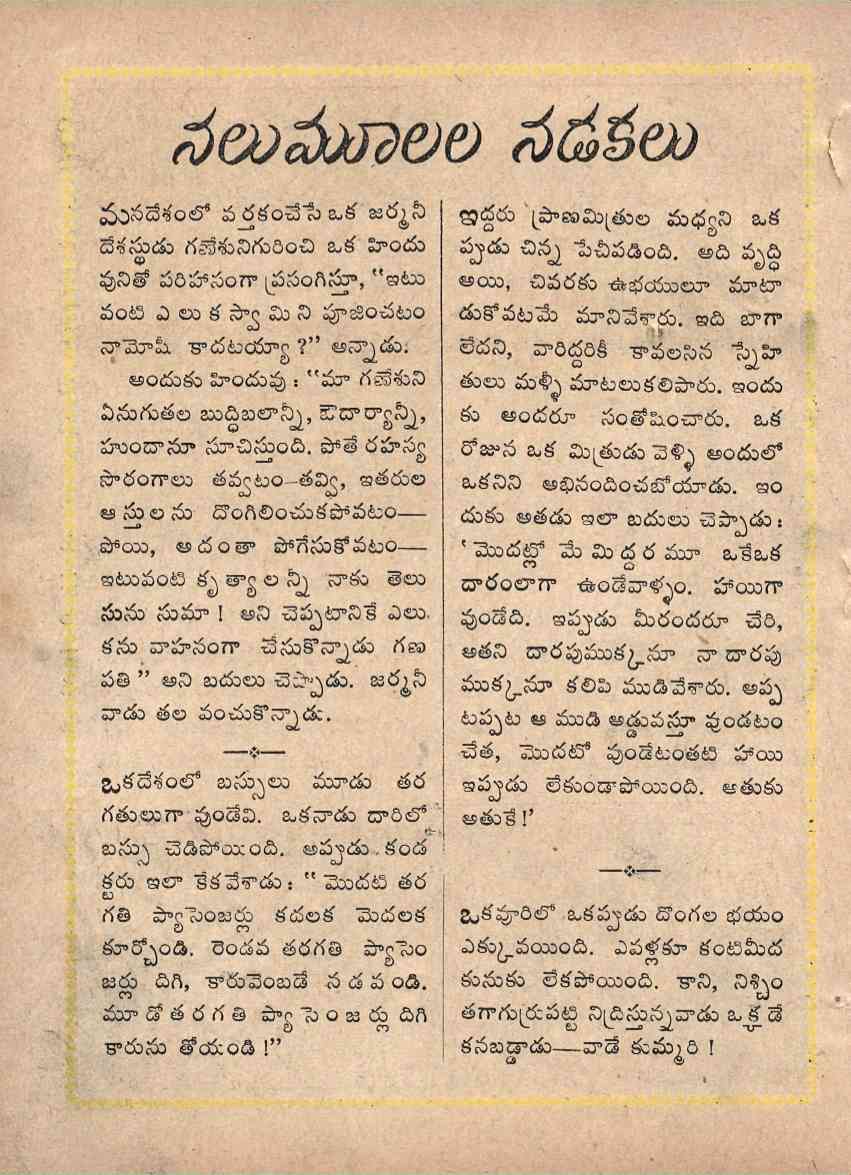 నలుమూలల నడకలు
మనదేశంలో వర్తకంచేసే ఒక జర్మనీ
దేశస్థుడు గణేశునిగురించి ఒక హిందు
వునితో పరిహాసంగా ప్రసంగిస్తూ, “ఇటు
వంటి ఎలుకస్వామిని పూజించటం
నామోషీ కాదటయ్యా ?” అన్నాడు.
అందుకు హిందువు : “మా గణేశుని
ఏనుగుతల బుద్ధిబలాన్నీ, ఔదార్యాన్నీ,
హుందానూ సూచిస్తుంది. పోతే రహస్య
సొరంగాలు తవ్వటం—తవ్వి, ఇతరుల
ఆస్తులను దొంగిలించుకపోవటం—
పోయి, అదంతా పోగేసుకోవటం—
ఇటువంటి కృత్యాలన్నీ నాకు తెలు
సును సుమా ! అని చెప్పటానికే ఎలు
కను వాహనంగా చేసుకొన్నాడు గణ
పతి” అని బదులు చెప్పాడు. జర్మనీ
వాడు తల వంచుకొన్నాడు.
ఒకదేశంలో బస్సులు మూడు తర
గతులుగా వుండేవి. ఒకనాడు దారిలో
బస్సు చెడిపోయింది. అప్పుడు కండ
క్టరు ఇలా కేకవేశాడు : “ మొదటి తర
గతి ప్యాసెంజర్లు కదలక మెదలక
కూర్చోండి. రెండవ తరగతి ప్యాసెం
జర్లు దిగి, కారువెంబడే నడవండి.
మూడో తరగతి ప్యాసెంజర్లు దిగి
కారును తోయండి !”
ఇద్దరు ప్రాణమిత్రుల మధ్యని ఒక
ప్పుడు చిన్న పేచీపడింది. అది వృద్ధి
అయి, చివరకు ఉభయులూ మాటా
డుకోవటమే మానివేశారు. ఇది బాగా
లేదని, వారిద్దరికీ కావలసిన స్నేహి
తులు మళ్ళీ మాటలుకలిపారు. ఇందు
కు అందరూ సంతోషించారు. ఒక
రోజున ఒక మిత్రుడు వెళ్ళి అందులో
ఒకనిని అభినందించబోయాడు. ఇం
దుకు అతడు ఇలా బదులు చెప్పాడు :
‘ మొదట్లో మేమిద్దరమూ ఒకేఒక
దారంలాగా ఉండేవాళ్ళం. హాయిగా
వుండేది. ఇప్పుడు మీరందరూ చేరి,
అతని దారపుముక్కనూ నా దారపు
ముక్కనూ కలిపి ముడివేశారు. అప్ప
టప్పట ఆ ముడి అడ్డువస్తూ వుండటం
చేత, మొదటో వుండేటంతటి హాయి
ఇప్పుడు లేకుండాపోయింది. అతుకు
అతుకే !’
ఒకవూరిలో ఒకప్పుడు దొంగల భయం
ఎక్కువయింది. ఎవళ్లకూ కంటిమీద
కునుకు లేకపోయింది. కాని, నిశ్చిం
తగాగుర్రుపట్టి నిద్రిస్తున్నవాడు ఒక్కడే
కనబడ్డాడు—వాడే కుమ్మరి !